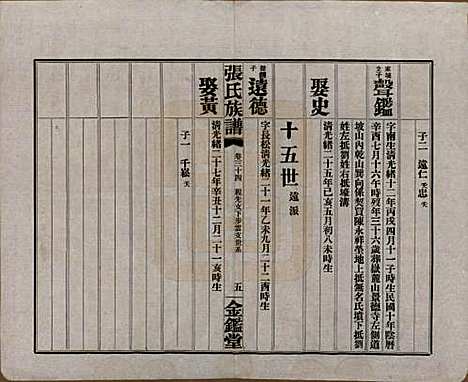 子二 遠仁 夭 忠 夭
聲鑑
字爾生清光緒十二年丙戌四月十一子時生民國十年陰曆
辛酉七月十六午時歿年三十六歲葬嶽麓山景德寺左側道
坡山內乾山巽向係契買陳永祥塋地上抵無名氏墳下抵劉
姓左抵劉姓右抵壕溝
娶史
清光緒二十五年己亥五月初八未時生
十五世 遠派
遠德
字長松清光緒二十一年乙未九月二十二酉時生
張氏族譜
卷三十四
五
金鑑堂
娶黃
清光緒二十七年辛丑十二月二十一亥時生
子一 千崧 夭